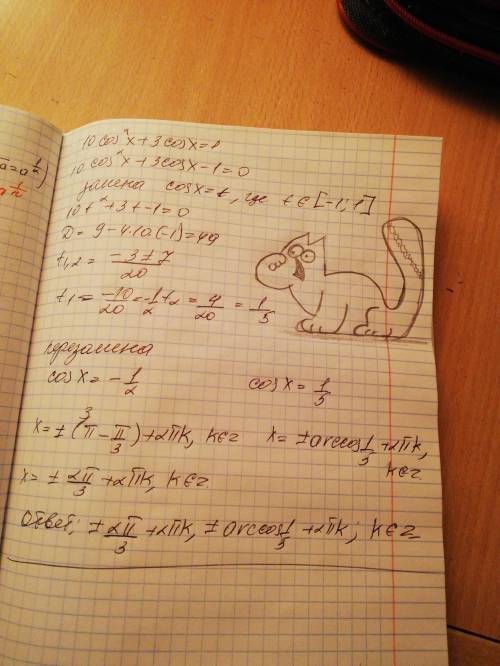 a=a^{1/n})
a^{1/n}
10 cos²x + 3 cos x = 1
10 cos²x + 3 cos x - 1 = 0
замена cos x = t, где t ∈ [-1; 1]
10t² + 3t - 1 = 0
D = 9 - 4·10·(-1) = 49
t₁,₂ = (-3 ± 7)/20
t₁ = -10/20 = -1/2 t₂ = 4/20 = 1/5
перезамена
cos x = -1/2 cos x = 1/5
x = ± (π - π/3) + 2πk, k∈z x = ± arccos 1/5 + 2πk,
k∈z
x = ± 2π/3 + 2πk, k∈z
ответ: ± 2π/3 + 2πk, ± arccos 1/5 + 2πk; k∈z